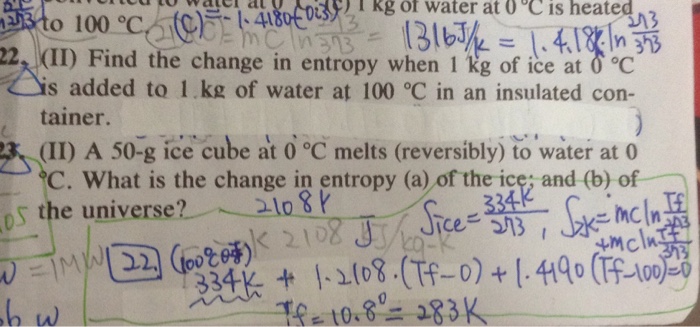 1 kg of water at 0 °C is heated
to 100 °C.
1316 J/k = 1.4.18k ln 273/373
22. (II) Find the change in entropy when 1 kg of ice at 0 °C
is added to 1 kg of water at 100 °C in an insulated con-
tainer.
23. (II) A 50-g ice cube at 0 °C melts (reversibly) to water at 0
°C. What is the change in entropy (a) of the ice; and (b) of
the universe?
2108
Sice = 334k/273 ,
= mc ln Tf/273
+mc ln Tf/373
2108 J/kg-K
22
334k + 1.2108.(Tf-0) + 1.4190 (Tf-100)=0
Tf = 10.8° = 283K